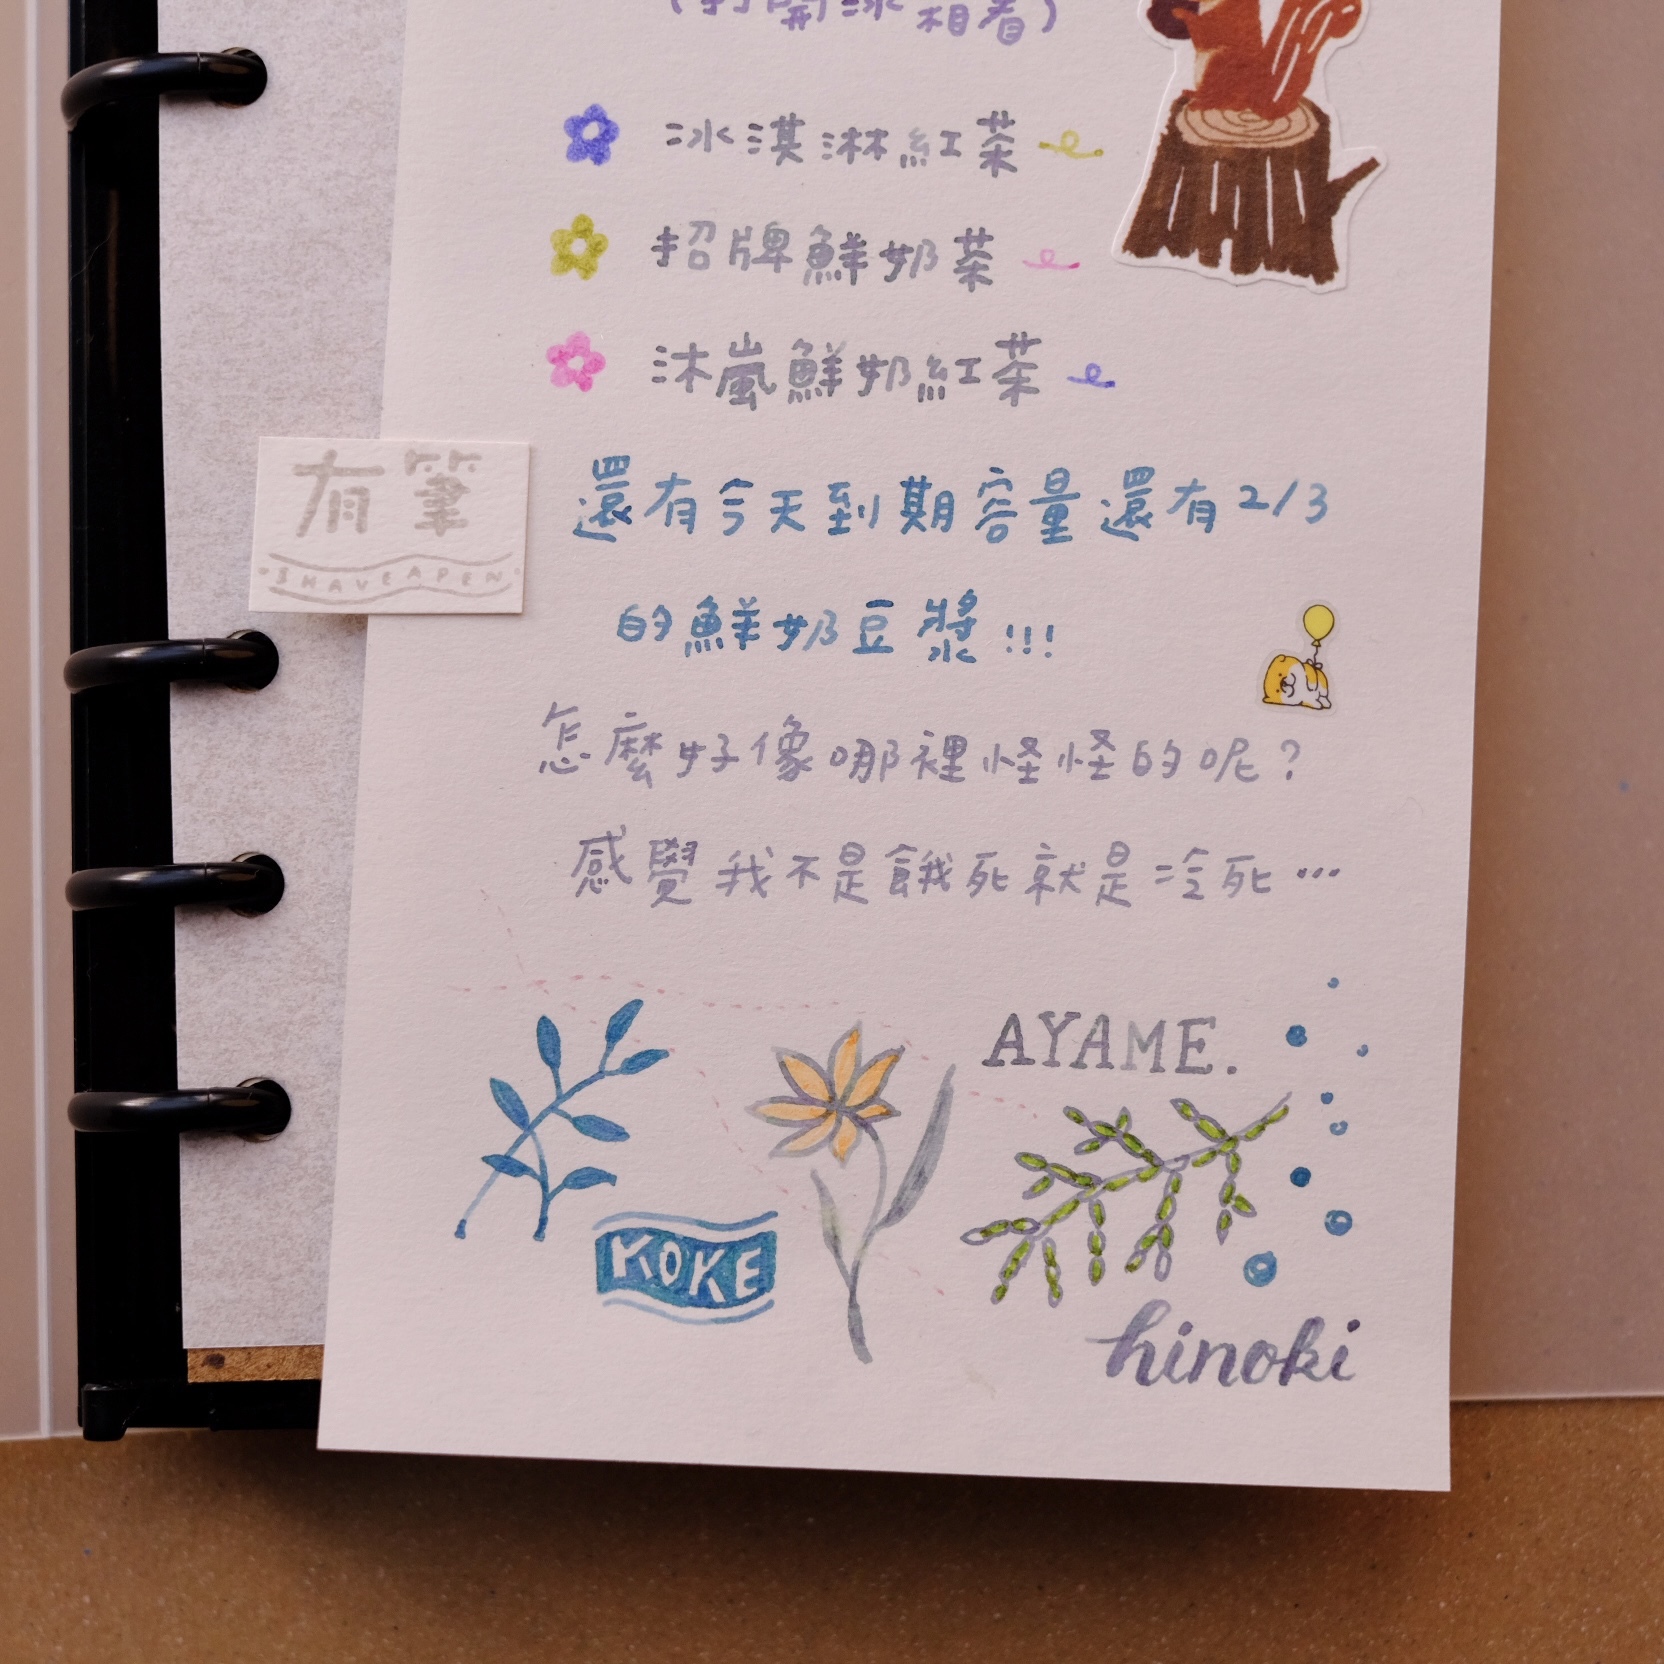 (打開冰箱看)
冰淇淋紅茶
招牌鮮奶茶
沐嵐鮮奶紅茶
有筆
SHAVEAPEN
還有今天到期容量還有2/3
的鮮奶豆漿!!!
怎麼好像哪裡怪怪的呢?
感覺我不是餓死就是冷死…
AYAME.
KOKE
hinoki